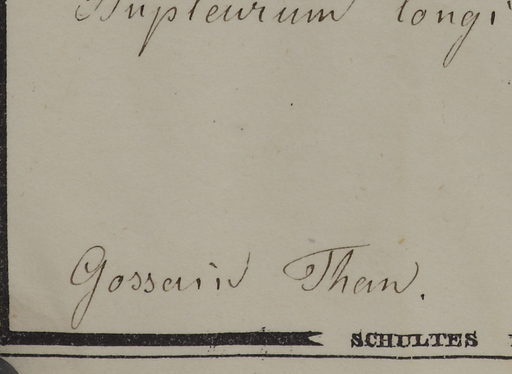 Bupleurum longi
Gossain Than.
SCHULTES